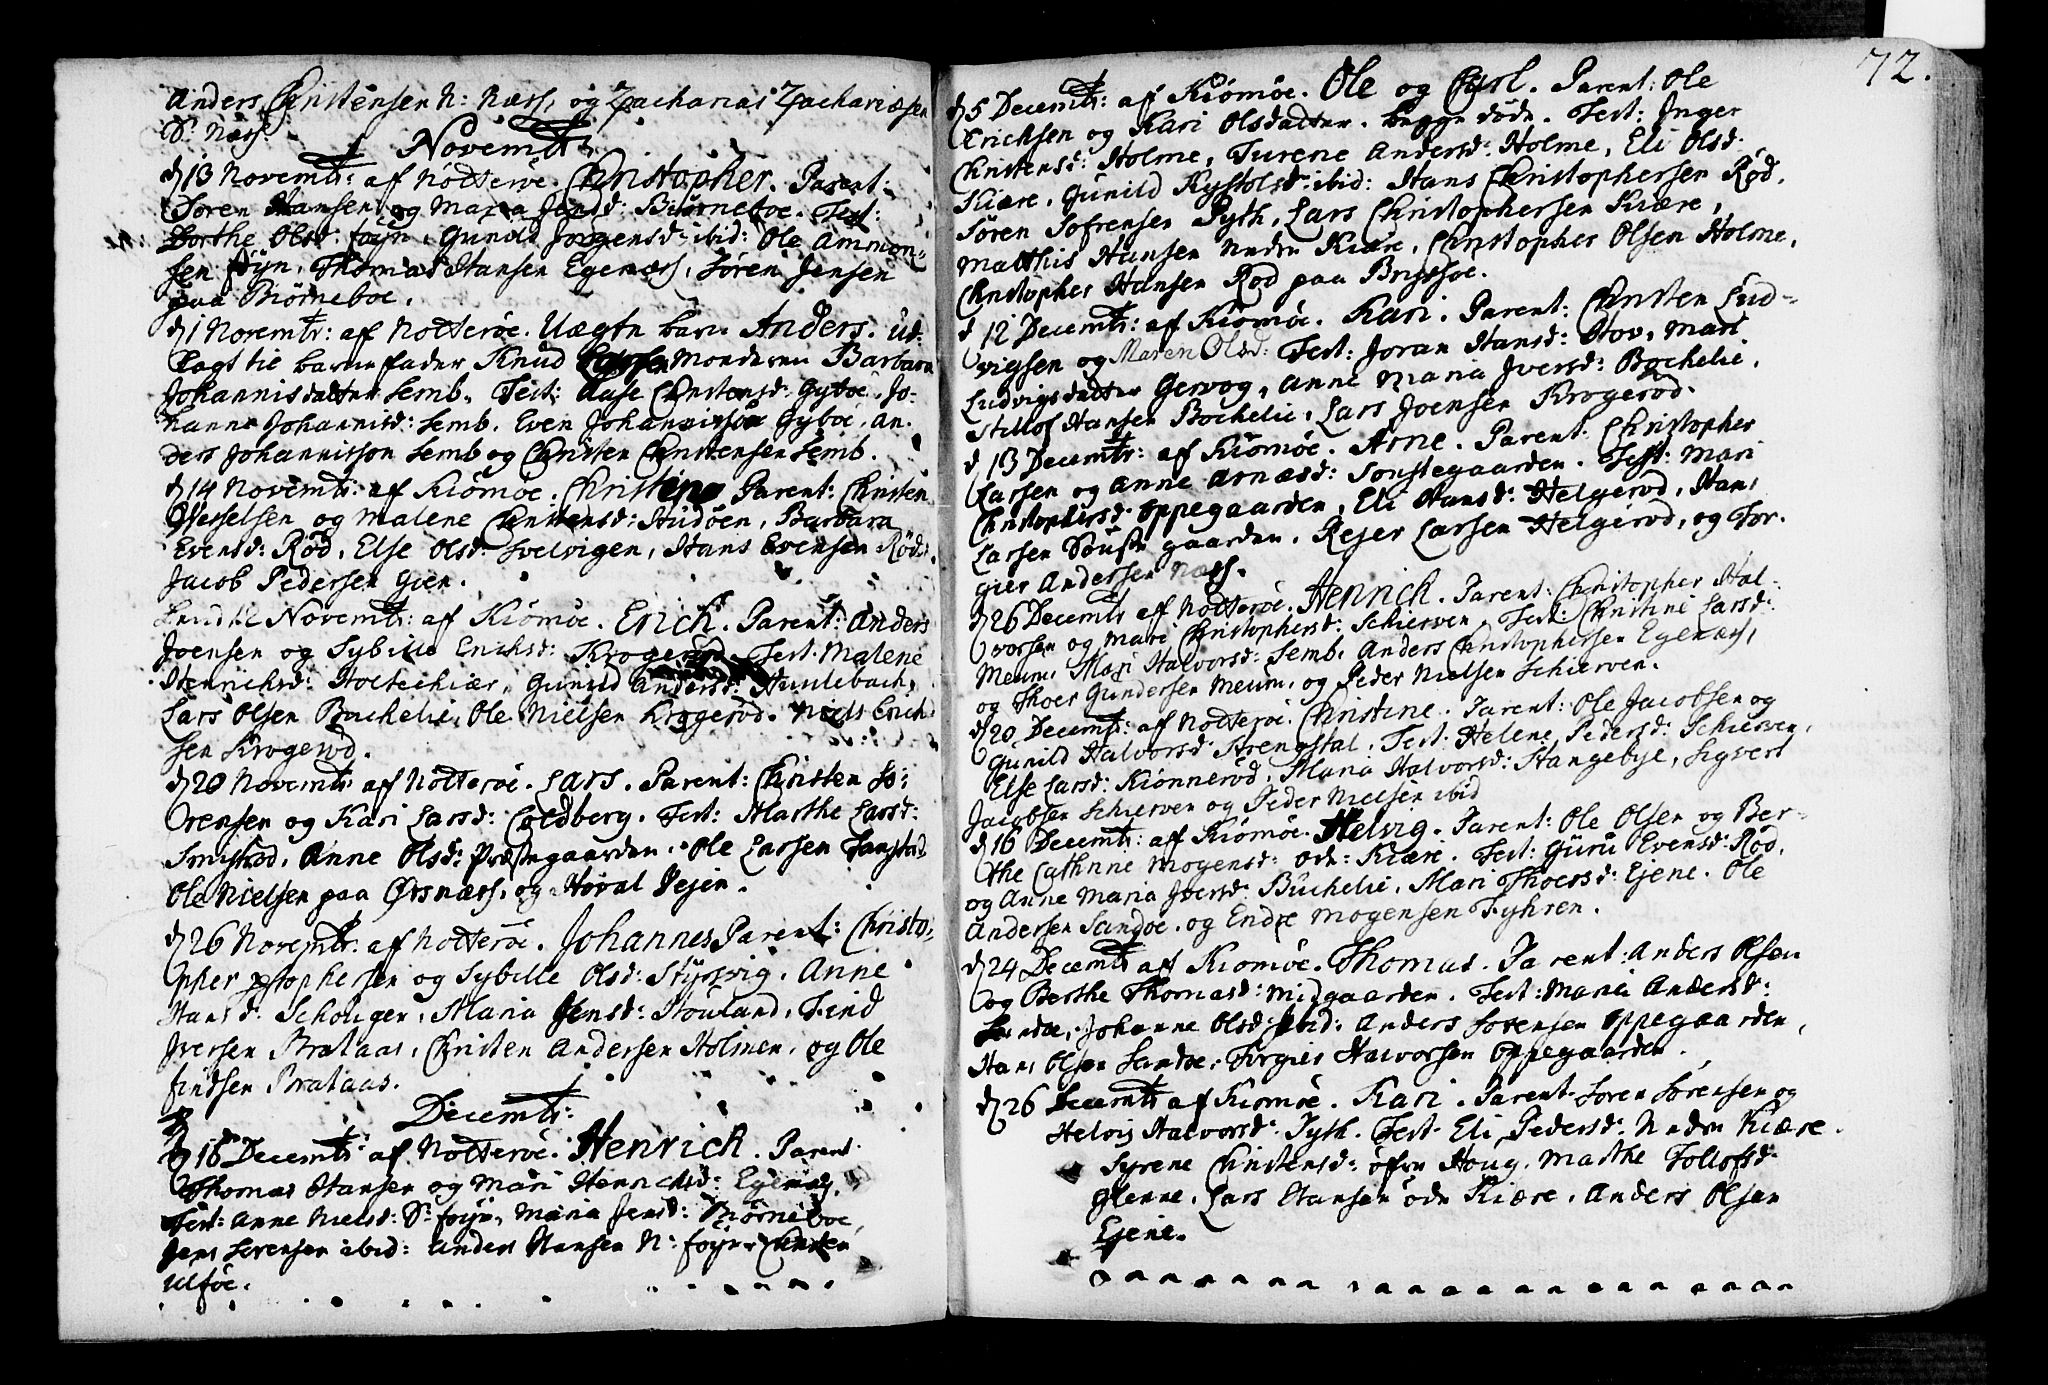 Anders Christensen N: Næss, og Zacharias Zachariæsen
S: Næss.
Novemb:
d 13 Novembr: af Nötteröe. Christopher. Parent:
Sören Hansen og Maria Jensd: Biörneboe. Test:
Dorthe Olsd: foyn, Gunild Jörgensd: ibid: Ole Ammon-
sen foyn, Thomas Hansen Egenæss, Sören Jensen
paa Biörneboe.
d 1 Novembr: af Nötteröe. Uægte barn Anders. Ud-
lagt til barnefader Knud Moderen Barbara
Johannisdatter Semb. Test: Aase Christensd: Gyböe. Jo-
hanne Johannisd: Semb. Even Johannisson Gyböe. An-
ders Johannisson Semb og Christen Christensen Semb.
d 14 Novembr: af Kiömöe. Christine Parent: Christen
Wesselsen og Malene Christensd: Hudöen, Barbara
Evensd: Röd, Else Olsd: Svelvigen, Hans Evensen Röd.
Jacob Pedersen Gien.
Novembr: af Kiömöe. Erich. Parent: Anders
Joensen og Sybille Erichsd: Krogeröd. Test: Malene
Henrichsd: Holtekiær, Gunild Andersd: Hunlebach,
Lars Olsen Buchelie, Ole Nielsen Krogeröd. Niels Erich-
sen Krogeröd.
d 20 Novembr af Nötteröe. Lars. Parent: Christen Sö-
rensen og Kari Larsd: Coldberg. Test: Marthe Larsd:
Smigstad, Anne Olsd: Præstegaarden. Ole Larsen
Ole Nielsen paa Örsnæss, og Hoval Vejen.
d 26 Novembr: af Nötteröe. Johannes Parent: Christo-
pher Xstophersen og Sybille Olsd: Styrsvig. Anne
Hansd: Schouger, Maria Jensd: Houland, Find
Iversen Brataas, Christen Andersen Holmen, og Ole
findsen Brataas.
Decembr:
d 16 Decembr: af Nötteröe. Henrich. Parent
Thomas Hansen og Mari Henrichsd: Egenæs,
Test: Anne Nielsd: S: foyn, Maria Jensd: Biörneboe,
Jens Sörensen ibid: Anders Hansen N: foyn Christen
Ulföe.
72.
d 5 Decembr: af Kiömöe. Ole og Carl. Parent: Ole
Erichsen og Kari Olsdatter. begge döde. Test: Inger
Christensd: Holme, Turene Andersd: Holme, Eli Olsd:
Kiære, Gunild Kystolsd: ibid: Hans Christophersen Röd,
Sören Sofrensen Pyth, Lars Christophersen Kiære,
Matthis Hansen Nedre Kiære, Christopher Olsen Holme,
Christopher Hansen Röd paa Bryssöe.
d 12 Decembr: af Kiömöe. Kari. Parent: Christen Lud-
vigsen og Maren Olsd: Test: Joran Hansd: Hov, Mari
Ludvigsdatter Gervog, Anne Maria Iversd: Bochelie,
Stillof Hansen Bochelie, Lars Joensen Krogeröd.
d 13 Decembr: af Kiömöe. Arne. Parent: Christopher
Larsen og Anne Arnæsd: Sönstegaarden. Test: Mari
Christophersd: Oppegaarden, Eli Hansd: Helgeröd, Hans
Larsen Sönste gaarden. Rejer Larsen Helgeröd, og Tor-
gier Andersen Næss.
d 26 Decembr af Nötteröe. Henrich. Parent: Christopher Hal-
vorsen og Mari Christophersd: Schierven, Test: Christine Larsd:
Meum, Mari Halvorsd: Semb, Anders Christophersen Egenæss,
og Thoer Gundersen Meum, og Peder Nielsen Schierven.
d 20 Decembr: af Nötteröe. Christine. Parent: Ole Jacobsen og
Gunild Halvorsd: Strengstal, Test: Helene Pedersd: Schierven,
Else Larsd: Kiönneröd, Maria Halvorsd: Stangebye, Sigvert
Jacobsen Schierven og Peder Nielsen ibid
d 16 Decembr: af Kiömöe. Helvig. Parent: Ole Olsen og Ber-
the Cathrine Mogensd: Kiære. Test: Guru Evensd: Röd,
og Anne Maria Iversd: Buchelie, Mari Thoersd: Ejene. Ole
Andersen Sandöe. og Endre Mogensen Fyhren.
d 24 Decembr af Kiömöe. Thomas. Parent: Anders Olsen
og Berthe Thomasd: Midgaarden. Test: Maria Andersd:
Sandöe, Johanne Olsd: ibid: Anders Sörensen Oppegaarden,
Hans Olsen Sandöe. Torgier Halvorsen Oppegaarden.
d 26 Decembr af Kiömöe. Kari. Parent Sören Sörensen og
Helvig Halvorsd: Pyth. Test. Eli Pedersd: Nedre Kiære.
Syrene Christensd: öfre Houg. Marthe Tollofsd
Glenne. Lars Hansen Kiære. Anders Olsen
Ejene.